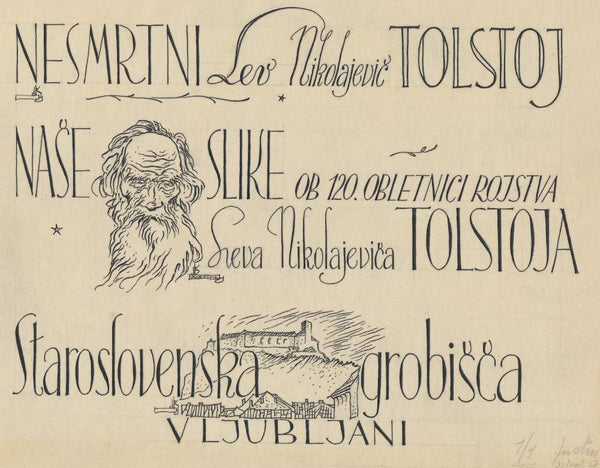 NESMRTNI Lev Nikolajevič TOLSTOJ
NAŠE SLIKE OB 120. OBLETNICI ROJSTVA
Leva Nikolajeviča TOLSTOJA
Staroslovenska grobišča
V LJUBLJANI
1/1